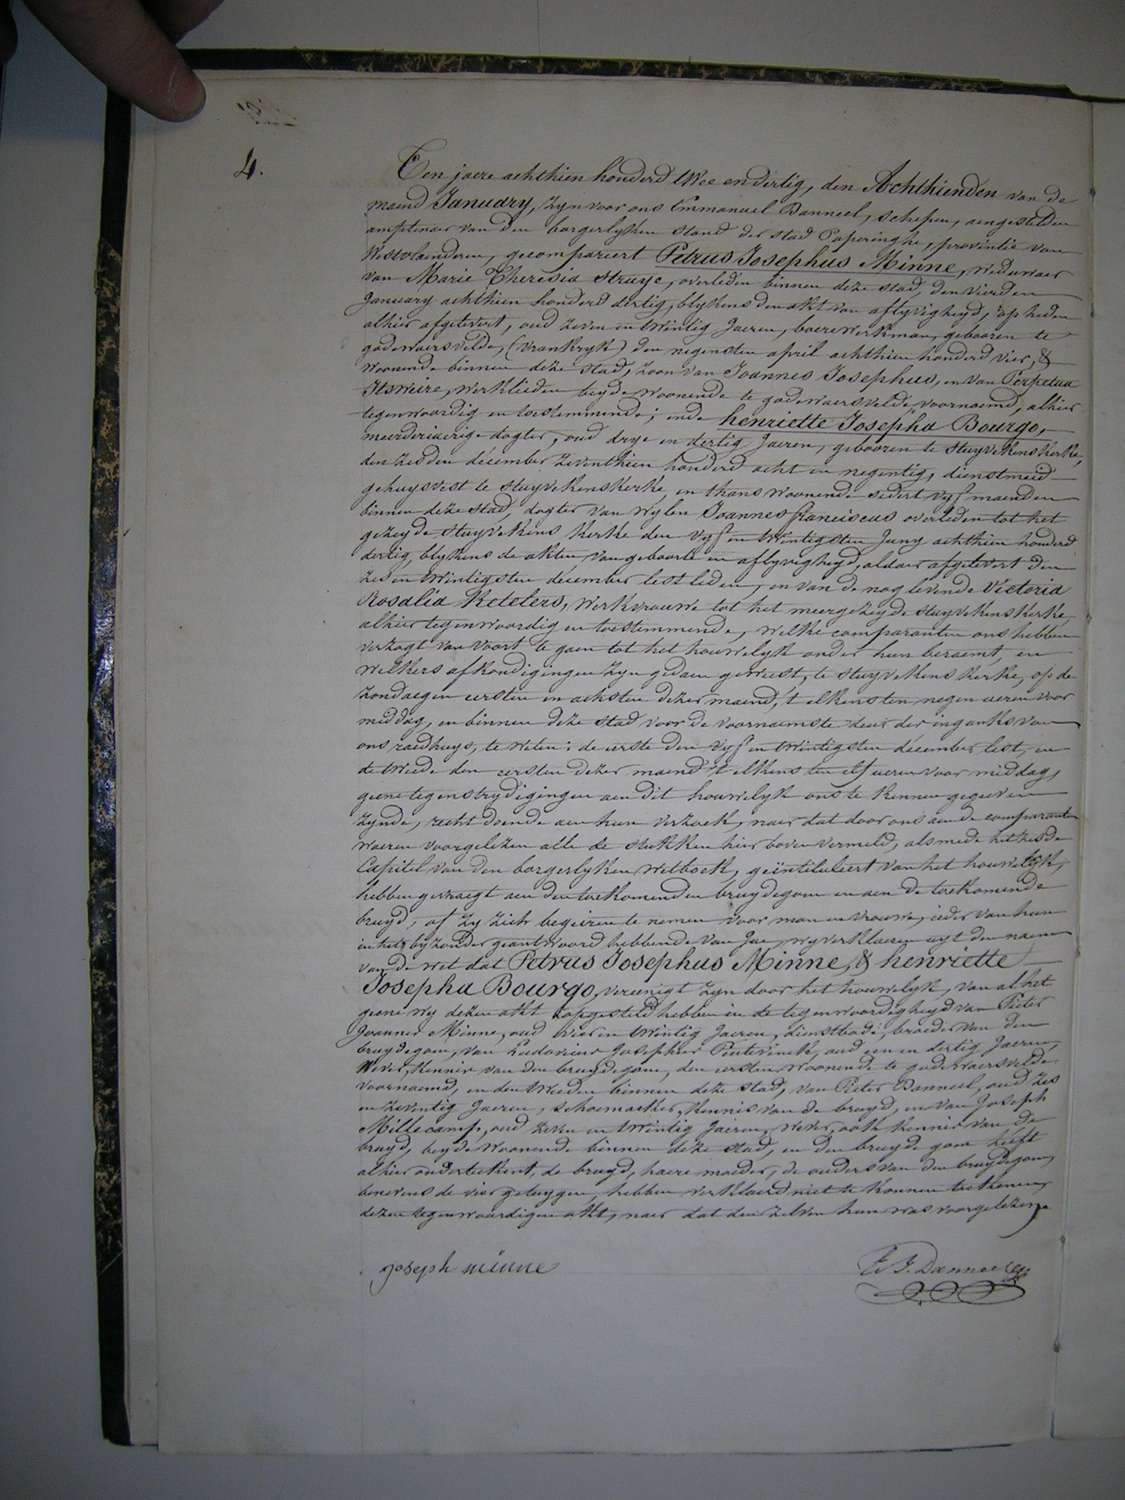 4.
Ten jaere achthien honderd twee en dertig, den Achthienden van de
maend January, zyn voor ons Emmanuel Banneel, schepen, aengestelden
amptenaer van den borgerlyken stand der stad Poperinghe, provintie van
Westvlaenderen, gecompareert Petrus Josephus Minne, weduwaer
van Marie Theresia Struye, overleden binnen deze stad, den vierden
January achthien honderd dertig, blykens den akt van aflyvigheyd, op heden
alhier afgelevert, oud zeven en twintig Jaeren, boerewerkman, gebooren te
godewaersvelde, (vrankryk) den negensten april achthien honderd vier, &
woonende binnen deze stad, zoon van Joannes Josephus, en van Perpetua
Itsweire, werklieden beyde woonende te godewaersvelde voornoemd, alhier
tegenwoordig en toestemmende; ende henriette Josepha Bourgo,
meerderjaerige dogter, oud drye en dertig Jaeren, gebooren te Stuyvekenskerke,
den zesden december zeventhien honderd acht en negentig, dienstmeid
gehuysvest te Stuyvekenskerke, en thans woonende sedert vyf maenden
binnen deze stad, dogter van wylen Joannes franciscus overleden tot het
gezeyde Stuyvekens kerke den vyf en twintigsten Juny achthien honderd
dertig, blykens de akten van geboorte en aflyvigheyd, aldaer afgelevert den
zes en twintigsten december lest leden, en van de nog levende Victoria
Rosalia Ketelers, werkvrouwe tot het meergezeyde Stuyvekenskerke,
alhier tegenwoordig en toestemmende, welke comparanten ons hebben
verzogt van voort te gaen tot het houwelyk onder hun beraemt, en
welkers afkondigingen zyn gedaen geweest, te Stuyvekenskerke, op de
zondaegen eersten en achsten dezer maend, 't elkens ten negen ueren voor
middag, en binnen deze stad voor de voornaemste deur der ingank van
ons raedhuys, te weten: de eerste den vyf en twintigsten december lest, en
de tweede den eersten dezer maend 't elkens ten elf ueren voor middag,
geene tegenstrydigingen aen dit houwelyk ons te kennen gegeven
zynde, recht doende aen hun verzoek, naer dat door ons aen de comparanten
waeren voorgelezen alle de stukken hier boven vermeld, alsmede het zesde
Capitel van den borgerlyken wetboek, geïntituleert van het houwelyk,
hebben gevraegt aen den toekomenden bruydegom en aen de toekomende
bruyd, of zy zich begeiren te nemen voor man en vrouwe, ieder van hun
in het byzonder geantwoord hebbende van Jae, wy verklaeren uyt den naem
van de wet dat Petrus Josephus Minne, & henriette
Josepha Bourgo, vereenigt zyn door het houwelyk, van al het
geene wy dezen akt opgesteld hebben in de tegenwoordigheyd van Pieter
Joannes Minne, oud vier en twintig Jaeren, dienstbode, broeder van den
bruydegom, van Ludovicus Josephus oud een en dertig Jaeren,
wever, kennis van den bruydegom, den eersten woonende te godewaersvelde
voornoemd, en den tweeden binnen deze stad, van Pieter Banneel, oud zes
en zeventig Jaeren, schoenmaeker, kennis van de bruyd, en van Joseph
Millecamp, oud zeven en twintig Jaeren, wever, ook kennis van de
bruyd, beyde woonende binnen deze stad, en den bruydegom heeft
alhier onderteekent, de bruyd, haere moeder, de ouders van den bruydegom,
benevens de vier getuygen, hebben verklaerd niet te konnen teekenen,
dezen tegenwoordigen akt, naer dat den zelven hun was voorgelezen
joseph minne
E. J. Banneel